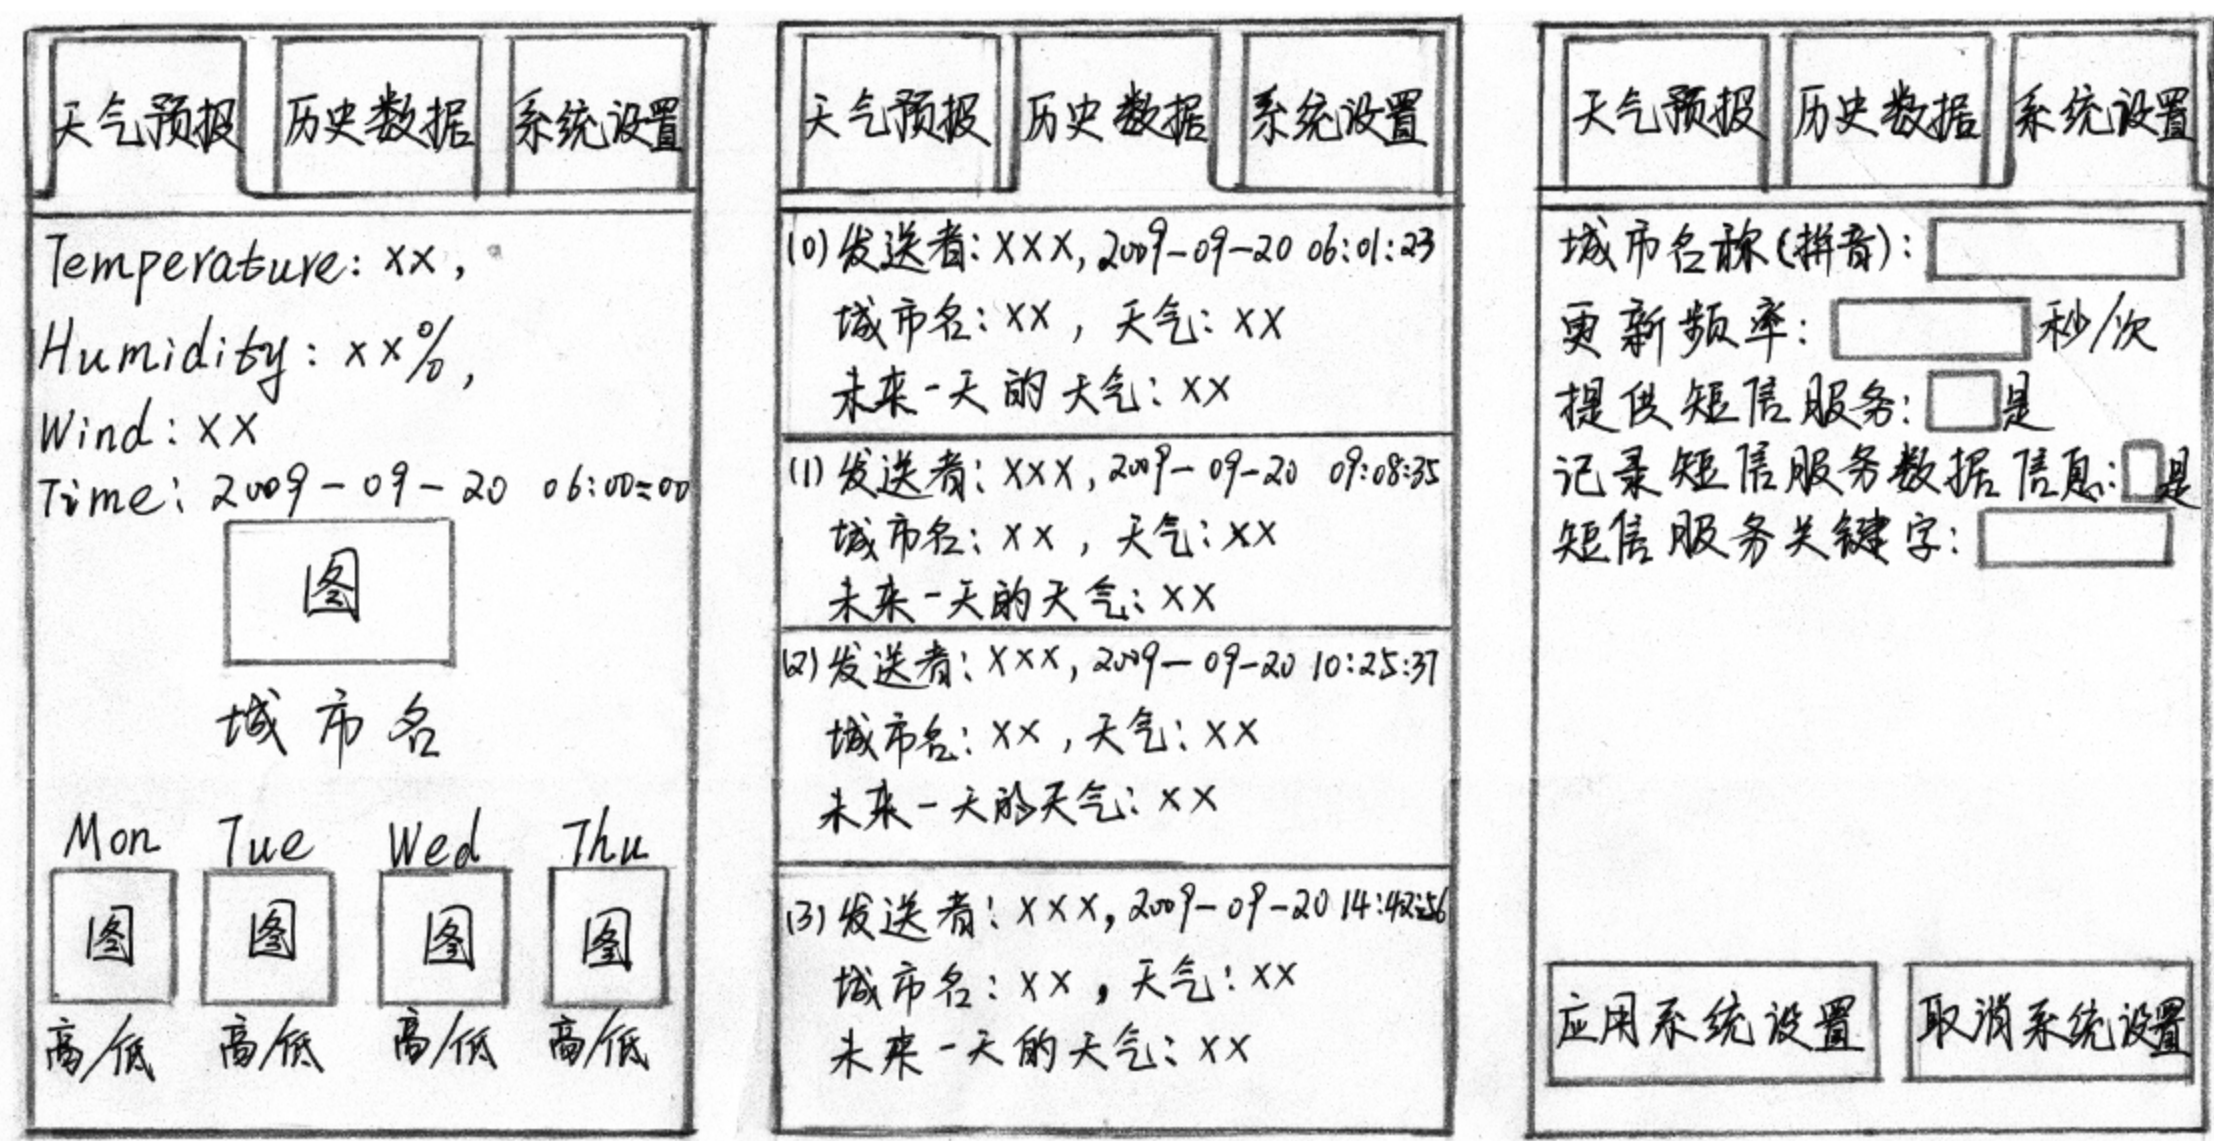 天气预报 历史数据 系统设置
Temperature: xx,
Humidity: xx%,
Wind: xx
Time: 2009-09-20 06:00:00
图
城市名
Mon Tue Wed Thu
图 图 图 图
高/低 高/低 高/低 高/低
天气预报 历史数据 系统设置
(0)发送者: xxx, 2009-09-20 06:01:23
城市名: xx, 天气: xx
未来一天的天气: xx
(1)发送者: xxx, 2009-09-20 09:08:35
城市名: xx, 天气: xx
未来一天的天气: xx
(2)发送者: xxx, 2009-09-20 10:25:37
城市名: xx, 天气: xx
未来一天的天气: xx
(3)发送者: xxx, 2009-09-20 14:42:56
城市名: xx, 天气: xx
未来一天的天气: xx
天气预报 历史数据 系统设置
城市名称(拼音):
更新频率: 秒/次
提供短信服务: 是
记录短信服务数据信息: 是
短信服务关键字:
应用系统设置 取消系统设置